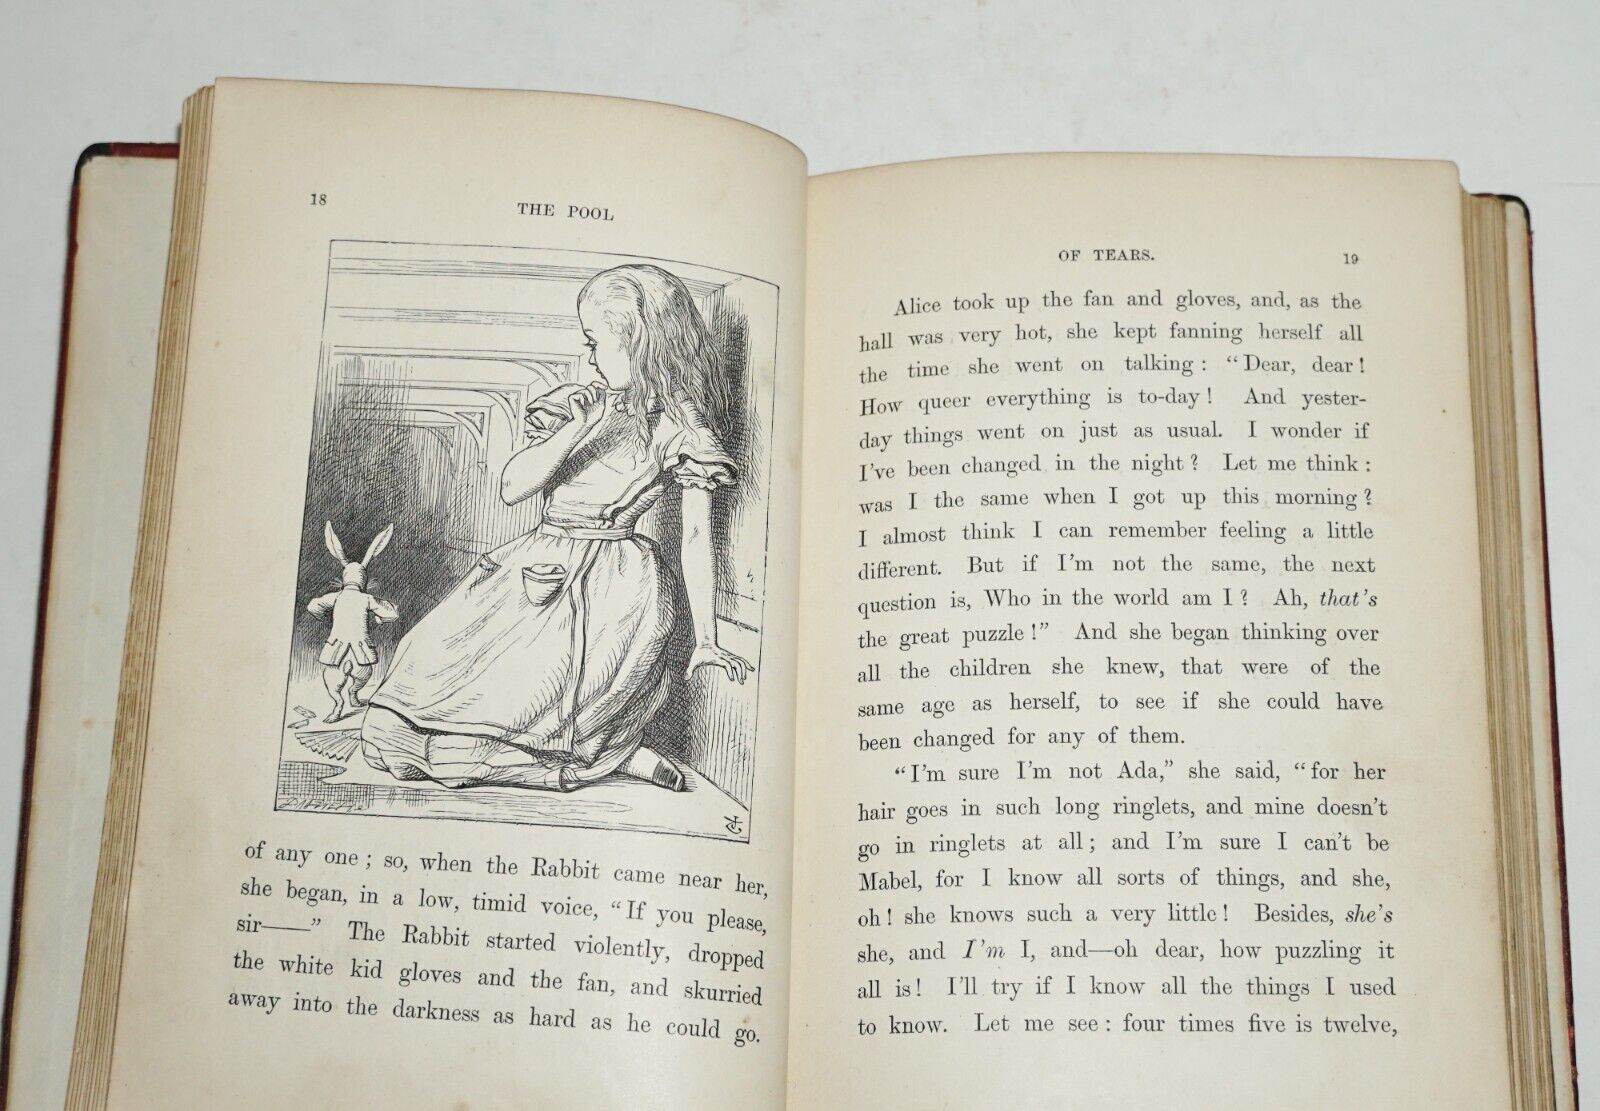 18
THE POOL
of any one ; so, when the Rabbit came near her,
she began, in a low, timid voice, “If you please,
sir——” The Rabbit started violently, dropped
the white kid gloves and the fan, and skurried
away into the darkness as hard as he could go.
OF TEARS.
19
Alice took up the fan and gloves, and, as the
hall was very hot, she kept fanning herself all
the time she went on talking : “Dear, dear !
How queer everything is to-day ! And yester-
day things went on just as usual. I wonder if
I’ve been changed in the night ? Let me think :
was I the same when I got up this morning ?
I almost think I can remember feeling a little
different. But if I’m not the same, the next
question is, Who in the world am I ? Ah, that’s
the great puzzle !” And she began thinking over
all the children she knew, that were of the
same age as herself, to see if she could have
been changed for any of them.
“I’m sure I’m not Ada,” she said, “for her
hair goes in such long ringlets, and mine doesn’t
go in ringlets at all ; and I’m sure I can’t be
Mabel, for I know all sorts of things, and she,
oh ! she knows such a very little ! Besides, she’s
she, and I’m I, and—oh dear, how puzzling it
all is ! I’ll try if I know all the things I used
to know. Let me see : four times five is twelve,